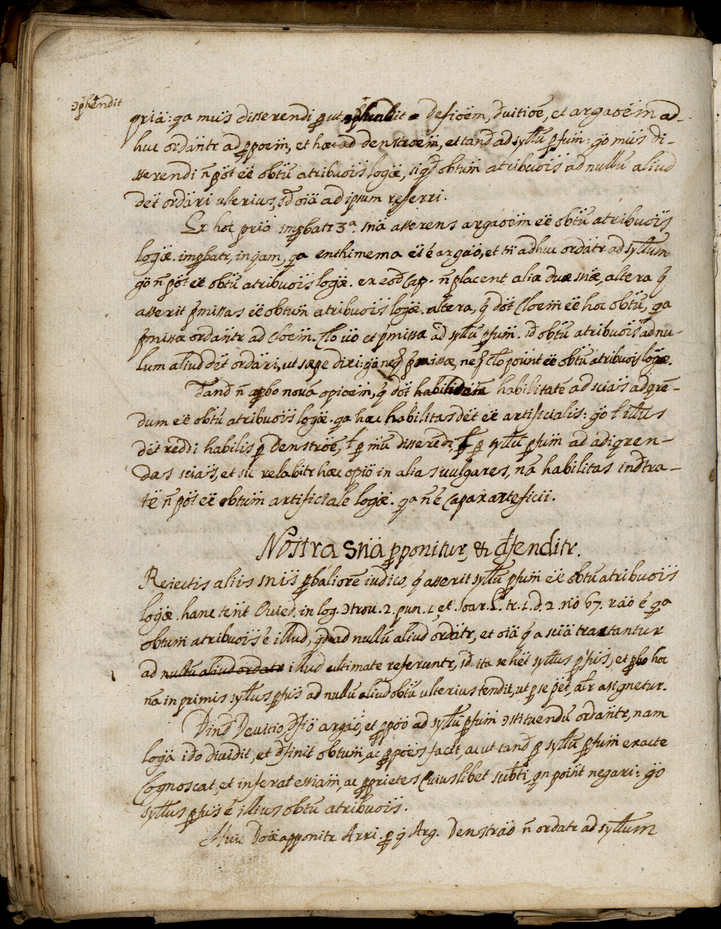 ɔphendit
pria: qa mūs disserendi put ophendit defiōem, Diuitiōe, et argaōem ad-
huc ordāntr ad ppōem, et hāc ad denstrōem, et tand ad syllū psum: go mūs di-
sserendi ñ pōt ēē obtū atribuois logæ, siqd obtum atribuois ad nullū aliud
det ordari ulterius, sd oiā ad ipsum referri.
Ex hoc priō impbatr 3ª. snā asserens argaōem ēē obtū atribuois
logæ. impbatr, inqam, qa enthimema ēt ē argaō, et tñ adhuc ordatr ad syllum
go ñ pōt ēē obtū atribuois logæ. ex eod Cap. ñ placent aliæ duæ snæ, altera q
asserit pmissas ēē obtum atribuois logæ. altera, q dōt Cloem ēē hoc obtū, qa
pmissæ ordantr ad Cloem. Clo uō et pmissæ ad syllū psum. sd obtū atribuois ad nu-
lum aliud det ordari, ut sæpe dixi: neq pmissæ, neq Clo poīunt ēē obtū atribuois logæ.
Tand ñ apbo nouā opioēm, q dōt habilitatē ad sciās adqren-
dum ēē obtū atribuois logæ. qa hæc habilitas det ēē artificialis: go
det reddi habilis p Denstrōe, l p mū disserēdi, l p syllū psum ad adiqren-
das sciās, et sic relabitr hæc opiō in alia uulgares, nā habilitas indtra-
tē ñ pōt ēē obtum artificiale logæ. qa ñ ē Capax artificii.
Nostra snā pponitur, & dfenditr.
Reiectis aliis snis pbaliorē iudico, q asserit syllū psum ēē obtū atribuois
logæ. hanc tent Ouied. in log. ɔtrou. 2. pun. 1. et Soar. L. tr. 1. d. 2. nō 67. raō ē qa
obtum atribuois ē illud, qd ad nullū aliud ordatr, et oiā q a sciā tractantur
ad nullū aliud ordatr illud ultimate referuntr, sd ita se het syllus psus, et pbo hoc
nā in primis syllus psus ad nullū aliud obtū ulterius tendit, ut p se pet, alr asignetur.
Dind Deuitiō, dfiō argaō, et ppōo ad syllū psum ɔstituendū ordantr, nam
logā idō diuidit, et dfinit obtum, ac ppōes facit, ac ut tand p syllū psum exacte
Cognoscat, et inferat essiam, ac pprietes Cuiuslibet subti, q ñ poīnt negari: go
syllus psus ē illius obtū atribuois.
Huic Doæ apponitr Arri. p q Arg. Denstraō ñ ordatr ad syllum